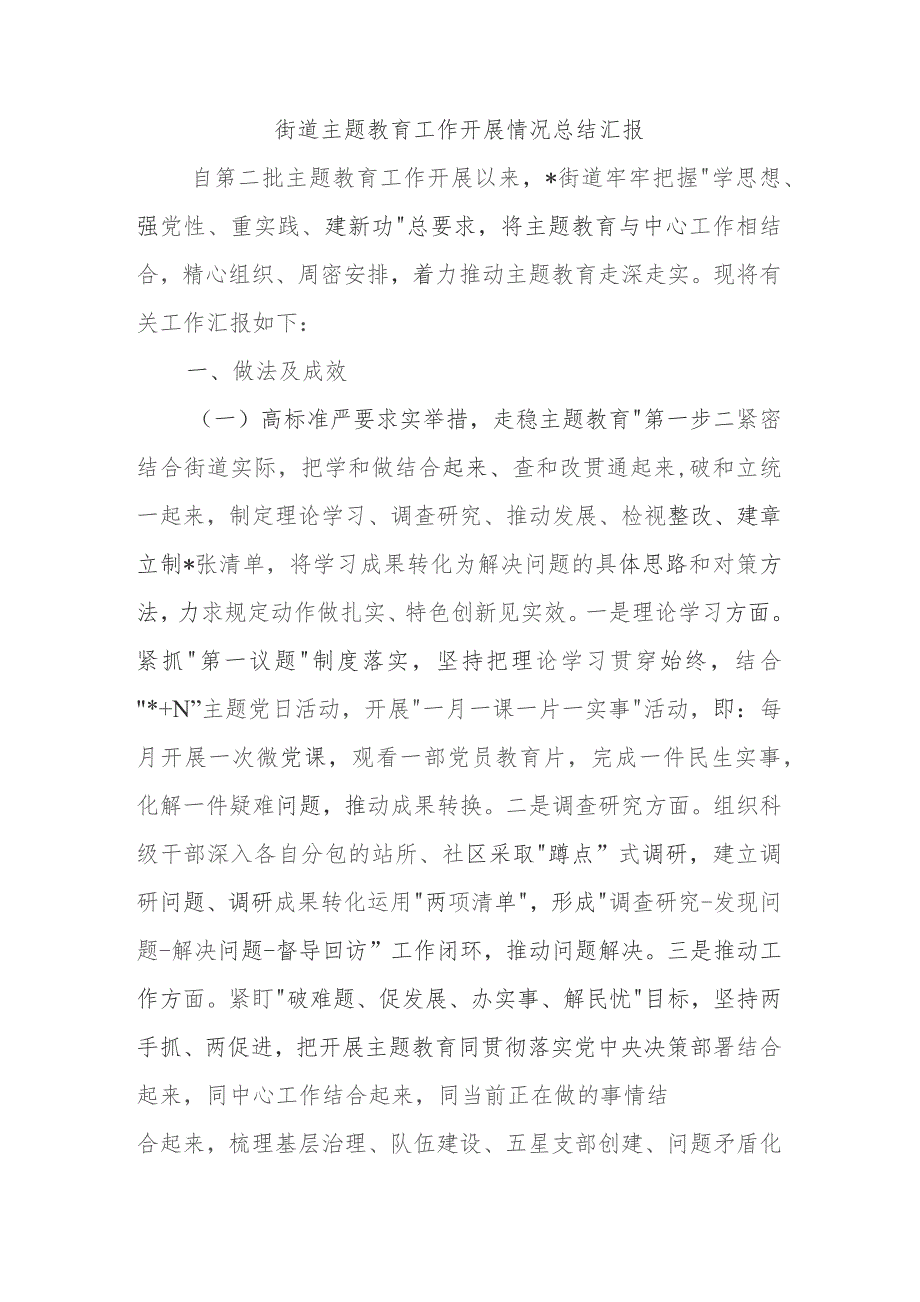 街道主题教育工作开展情况总结汇报
自第二批主题教育工作开展以来，*街道牢牢把握"学思想、
强党性、重实践、建新功"总要求，将主题教育与中心工作相结
合，精心组织、周密安排，着力推动主题教育走深走实。现将有
关工作汇报如下：
一、做法及成效
（一）高标准严要求实举措，走稳主题教育"第一步二紧密
结合街道实际，把学和做结合起来、查和改贯通起来,破和立统
一起来，制定理论学习、调查研究、推动发展、检视整改、建章
立制*张清单，将学习成果转化为解决问题的具体思路和对策方
法，力求规定动作做扎实、特色创新见实效。一是理论学习方面。
紧抓"第一议题"制度落实，坚持把理论学习贯穿始终，结合
"*+N”主题党日活动，开展"一月一课一片一实事"活动，即：每
月开展一次微党课，观看一部党员教育片，完成一件民生实事，
化解一件疑难问题，推动成果转换。二是调查研究方面。组织科
级干部深入各自分包的站所、社区采取"蹲点”式调研，建立调
研问题、调研成果转化运用"两项清单"，形成"调查研究-发现问
题-解决问题-督导回访”工作闭环，推动问题解决。三是推动工
作方面。紧盯"破难题、促发展、办实事、解民忧"目标，坚持两
手抓、两促进，把开展主题教育同贯彻落实党中央决策部署结合
起来，同中心工作结合起来，同当前正在做的事情结
合起来，梳理基层治理、队伍建设、五星支部创建、问题矛盾化